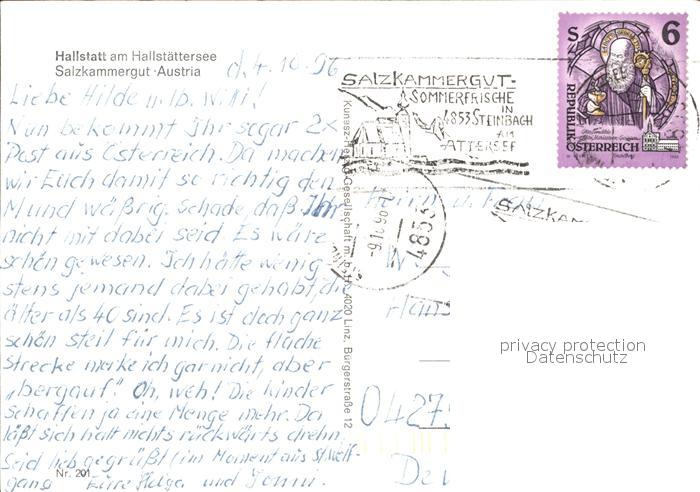 Hallstatt am Hallstättersee
Salzkammergut · Austria
d. 4. 10. 96
Liebe Hilde u. lb. Willi!
Nun bekommt Ihr sogar 2x
Post aus Österreich. Da machen
wir Euch damit so richtig den
Mund wäßrig. Schade daß Ihr
nicht mit dabei seid. Es wäre
schön gewesen. Ich hätte wenig-
stens jemand dabei gehabt, die
älter als 40 sind. Es ist doch ganz
schön steil für mich. Die flache
Strecke merke ich gar nicht, aber
„bergauf". Oh, weh! Die Kinder
schaffen ja eine Menge mehr. Da
läßt sich halt nichts rückwärts drehn.
Seid lieb gegrüßt (im Moment aus St. Wolf-
gang Eure Helga und
Nr. 201
4020 Linz, Bürgerstraße 12
SALZKAMMERGUT-
SOMMERFRISCHE
IN
4853 STEINBACH
AM
ATTERSEE
4853
SALZKAM
S 6
REPUBLIK
ÖSTERREICH
Herrn u.
Hans
0427
privacy protection
Datenschutz